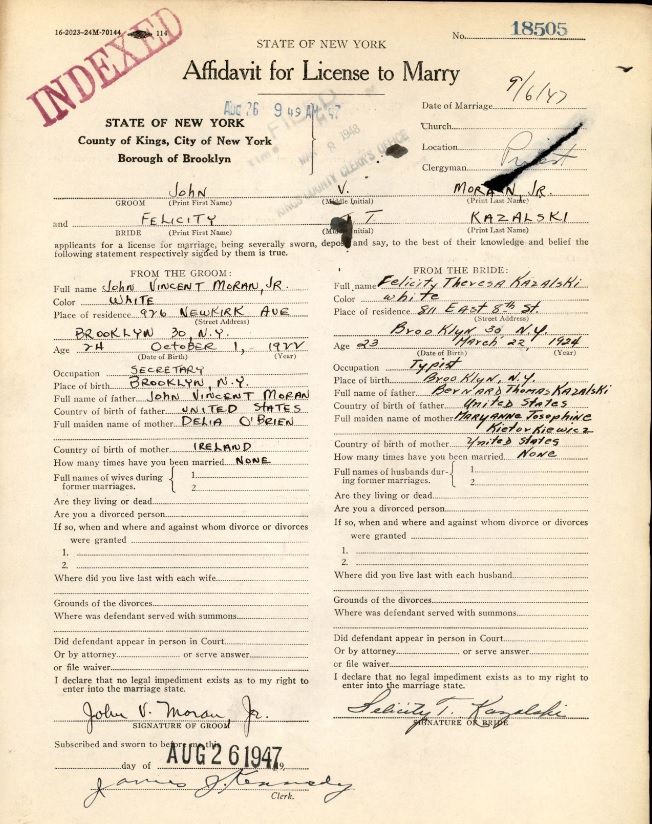 16-2023-24M-70144 114
No. 18505
INDEXED
STATE OF NEW YORK
Affidavit for License to Marry
AUG 26 9 49 AM '47
FILED
8 1948
KINGS COUNTY CLERK'S OFFICE
STATE OF NEW YORK
County of Kings, City of New York
Borough of Brooklyn
Date of Marriage 9/6/47
Church
Location
Clergyman Priest
John V. MORAN, JR.
GROOM (Print First Name) (Middle Initial) (Print Last Name)
and FELICITY T KAZALSKI
BRIDE (Print First Name) (Middle Initial) (Print Last Name)
applicants for a license for marriage, being severally sworn, depose and say, to the best of their knowledge and belief the
following statement respectively signed by them is true.
FROM THE GROOM:
Full name JOHN VINCENT MORAN, JR.
Color WHITE
Place of residence 926 NEWKIRK AVE
(Street Address)
BROOKLYN 30, N.Y.
Age 24 OCTOBER 1, 1922
(Date of Birth) (Year)
Occupation SECRETARY
Place of birth BROOKLYN, N.Y.
Full name of father JOHN VINCENT MORAN
Country of birth of father UNITED STATES
Full maiden name of mother DELIA O'BRIEN
Country of birth of mother IRELAND
How many times have you been married NONE
Full names of wives during former marriages. 1
2
Are they living or dead
Are you a divorced person
If so, when and where and against whom divorce or divorces
were granted
1.
2.
Where did you live last with each wife
Grounds of the divorces
Where was defendant served with summons
Did defendant appear in person in Court
Or by attorney or serve answer
or file waiver
I declare that no legal impediment exists as to my right to
enter into the marriage state.
John V. Moran, Jr.
SIGNATURE OF GROOM
Subscribed and sworn to before me this
day of AUG 26 1947 19
James J. Kennedy
Clerk.
FROM THE BRIDE:
Full name Felicity Theresa Kazalski
Color white
Place of residence 811 EAST 8th St.
(Street Address)
Brooklyn 30, N.Y.
Age 23 March 22, 1924
(Date of Birth) (Year)
Occupation Typist
Place of birth Brooklyn, N.Y.
Full name of father BERNARD THOMAS KAZALSKI
Country of birth of father United States
Full maiden name of mother MARYANNE Josephine
Kietorkiewicz
Country of birth of mother United States
How many times have you been married NONE
Full names of husbands during former marriages. 1
2
Are they living or dead
Are you a divorced person
If so, when and where and against whom divorce or divorces
were granted
1.
2.
Where did you live last with each husband
Grounds of the divorces
Where was defendant served with summons
Did defendant appear in person in Court
Or by attorney or serve answer
or file waiver
I declare that no legal impediment exists as to my right to
enter into the marriage state.
Felicity T. Kazalski
SIGNATURE OF BRIDE